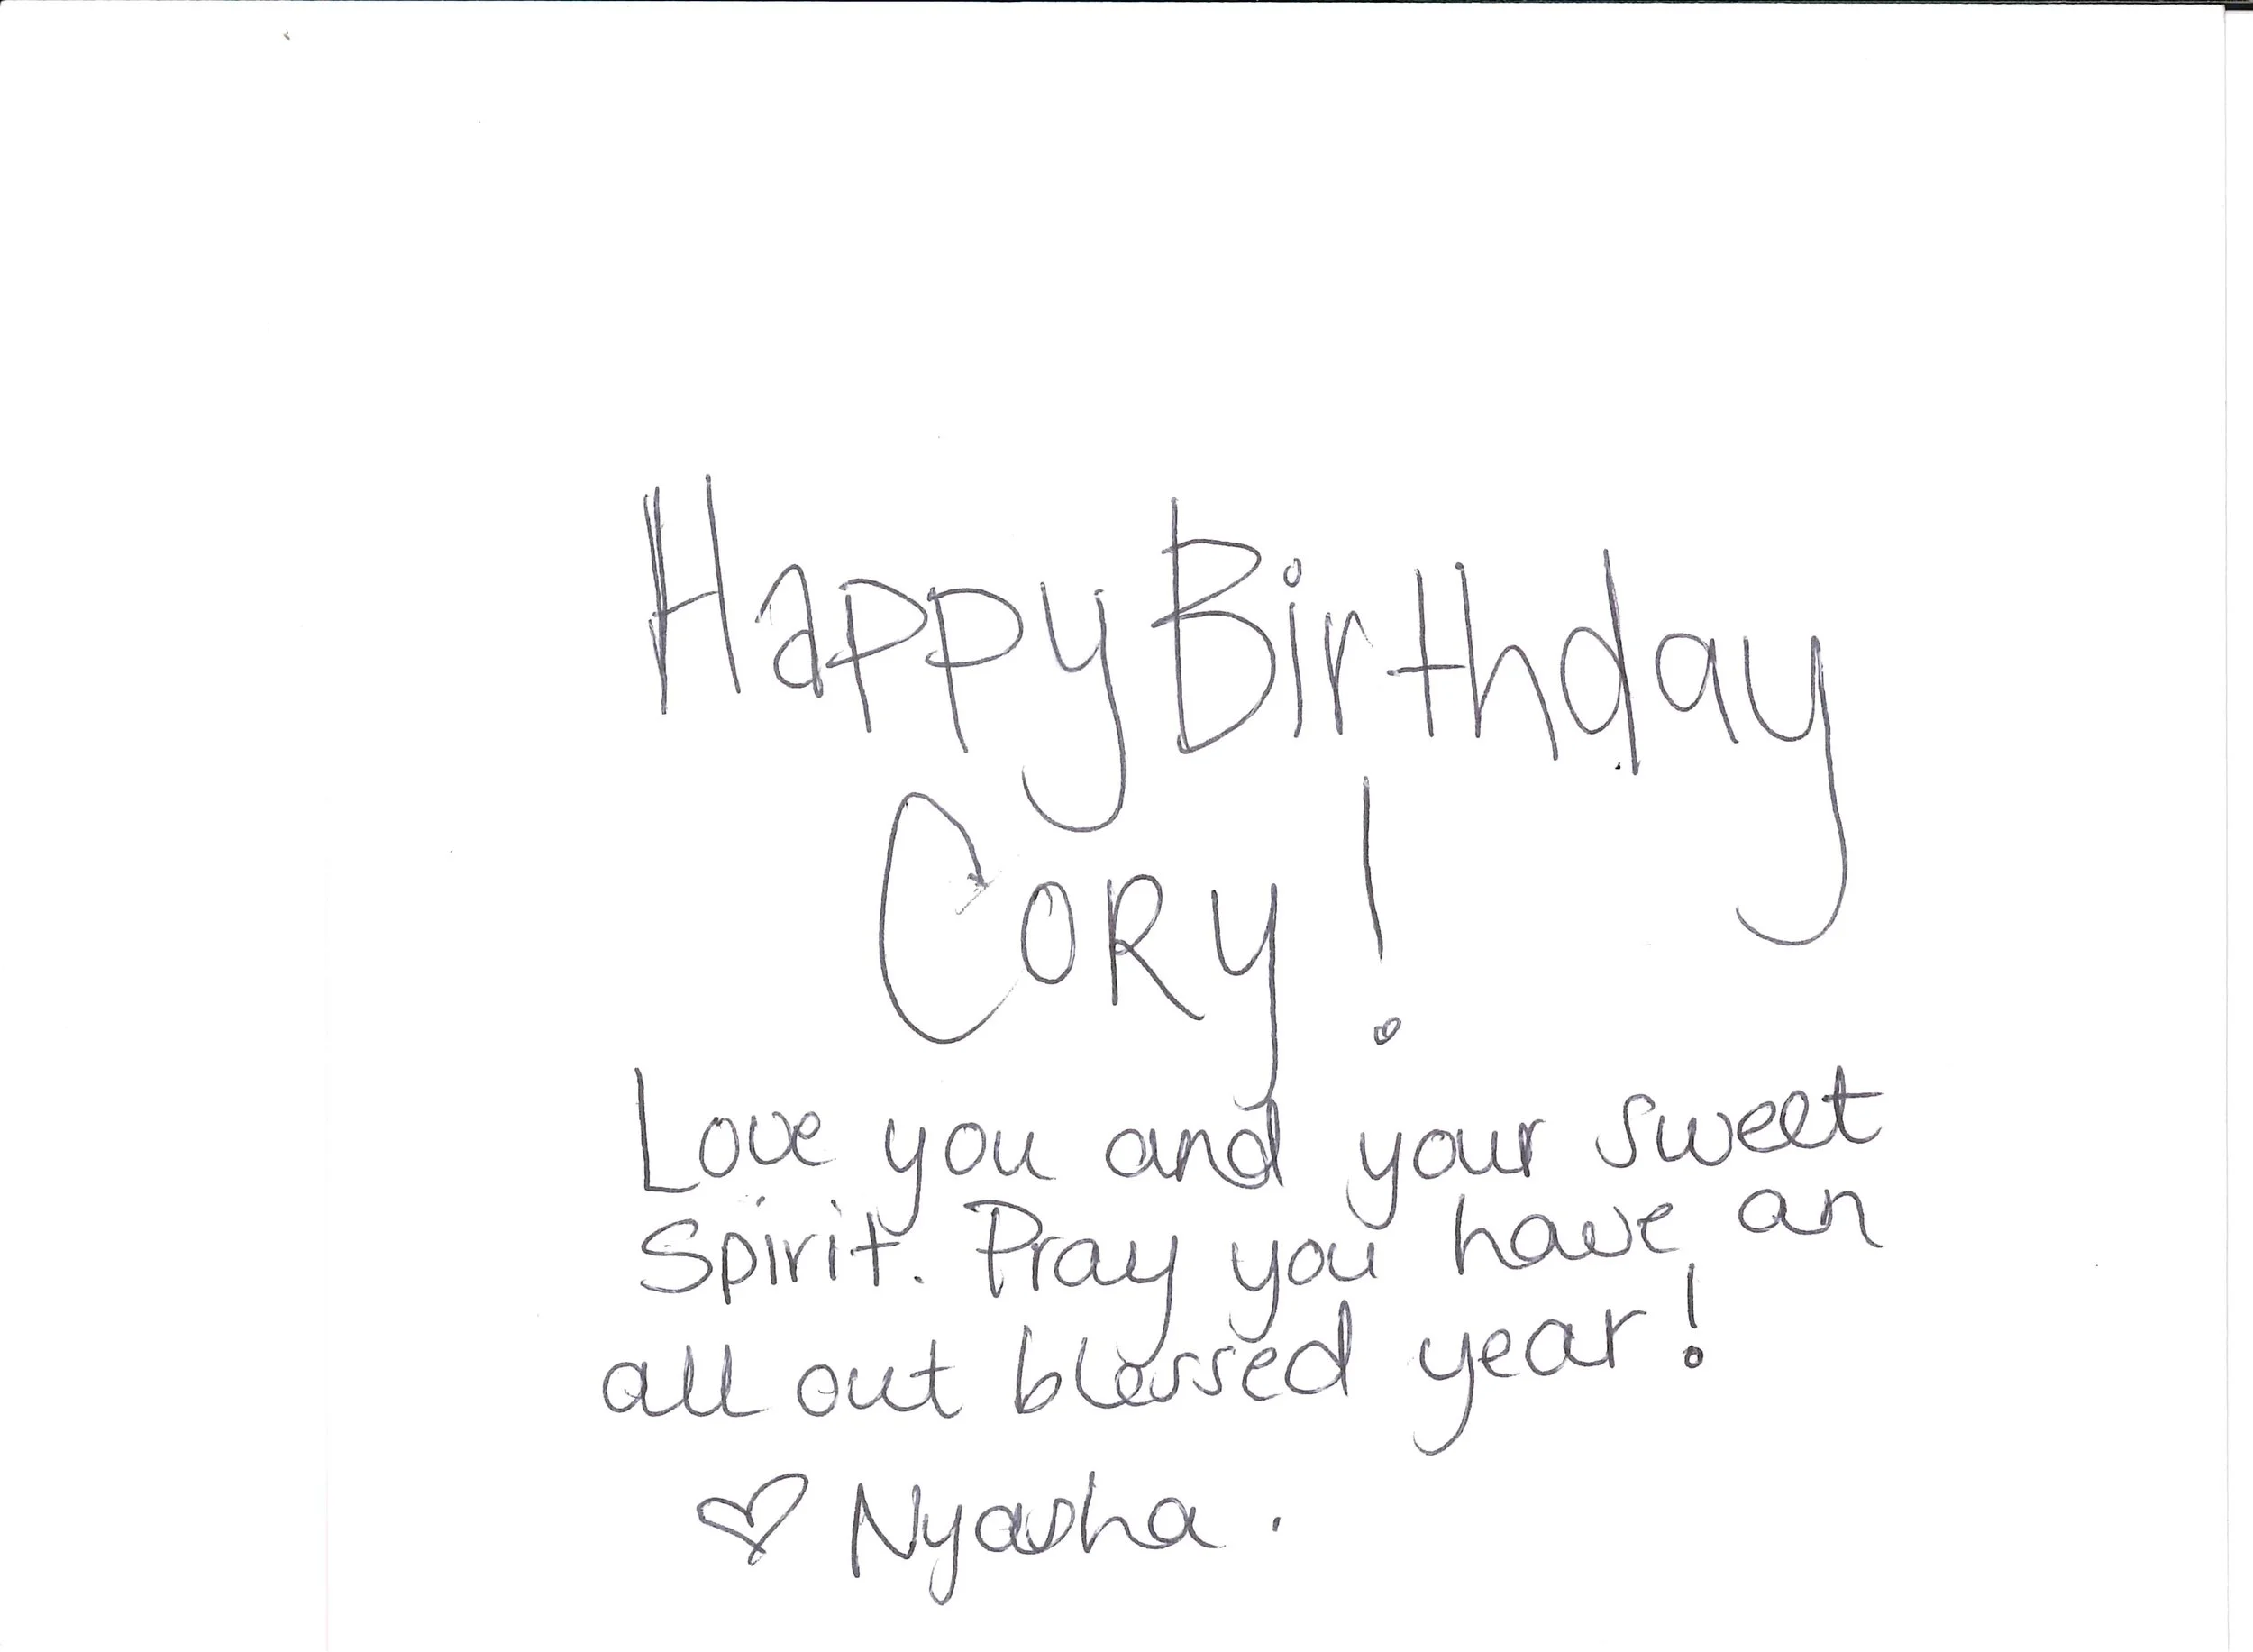 Happy Birthday
CORy!
Love you and your sweet
Spirit. Pray you have an
all out blessed year!
♡ Nyasha.